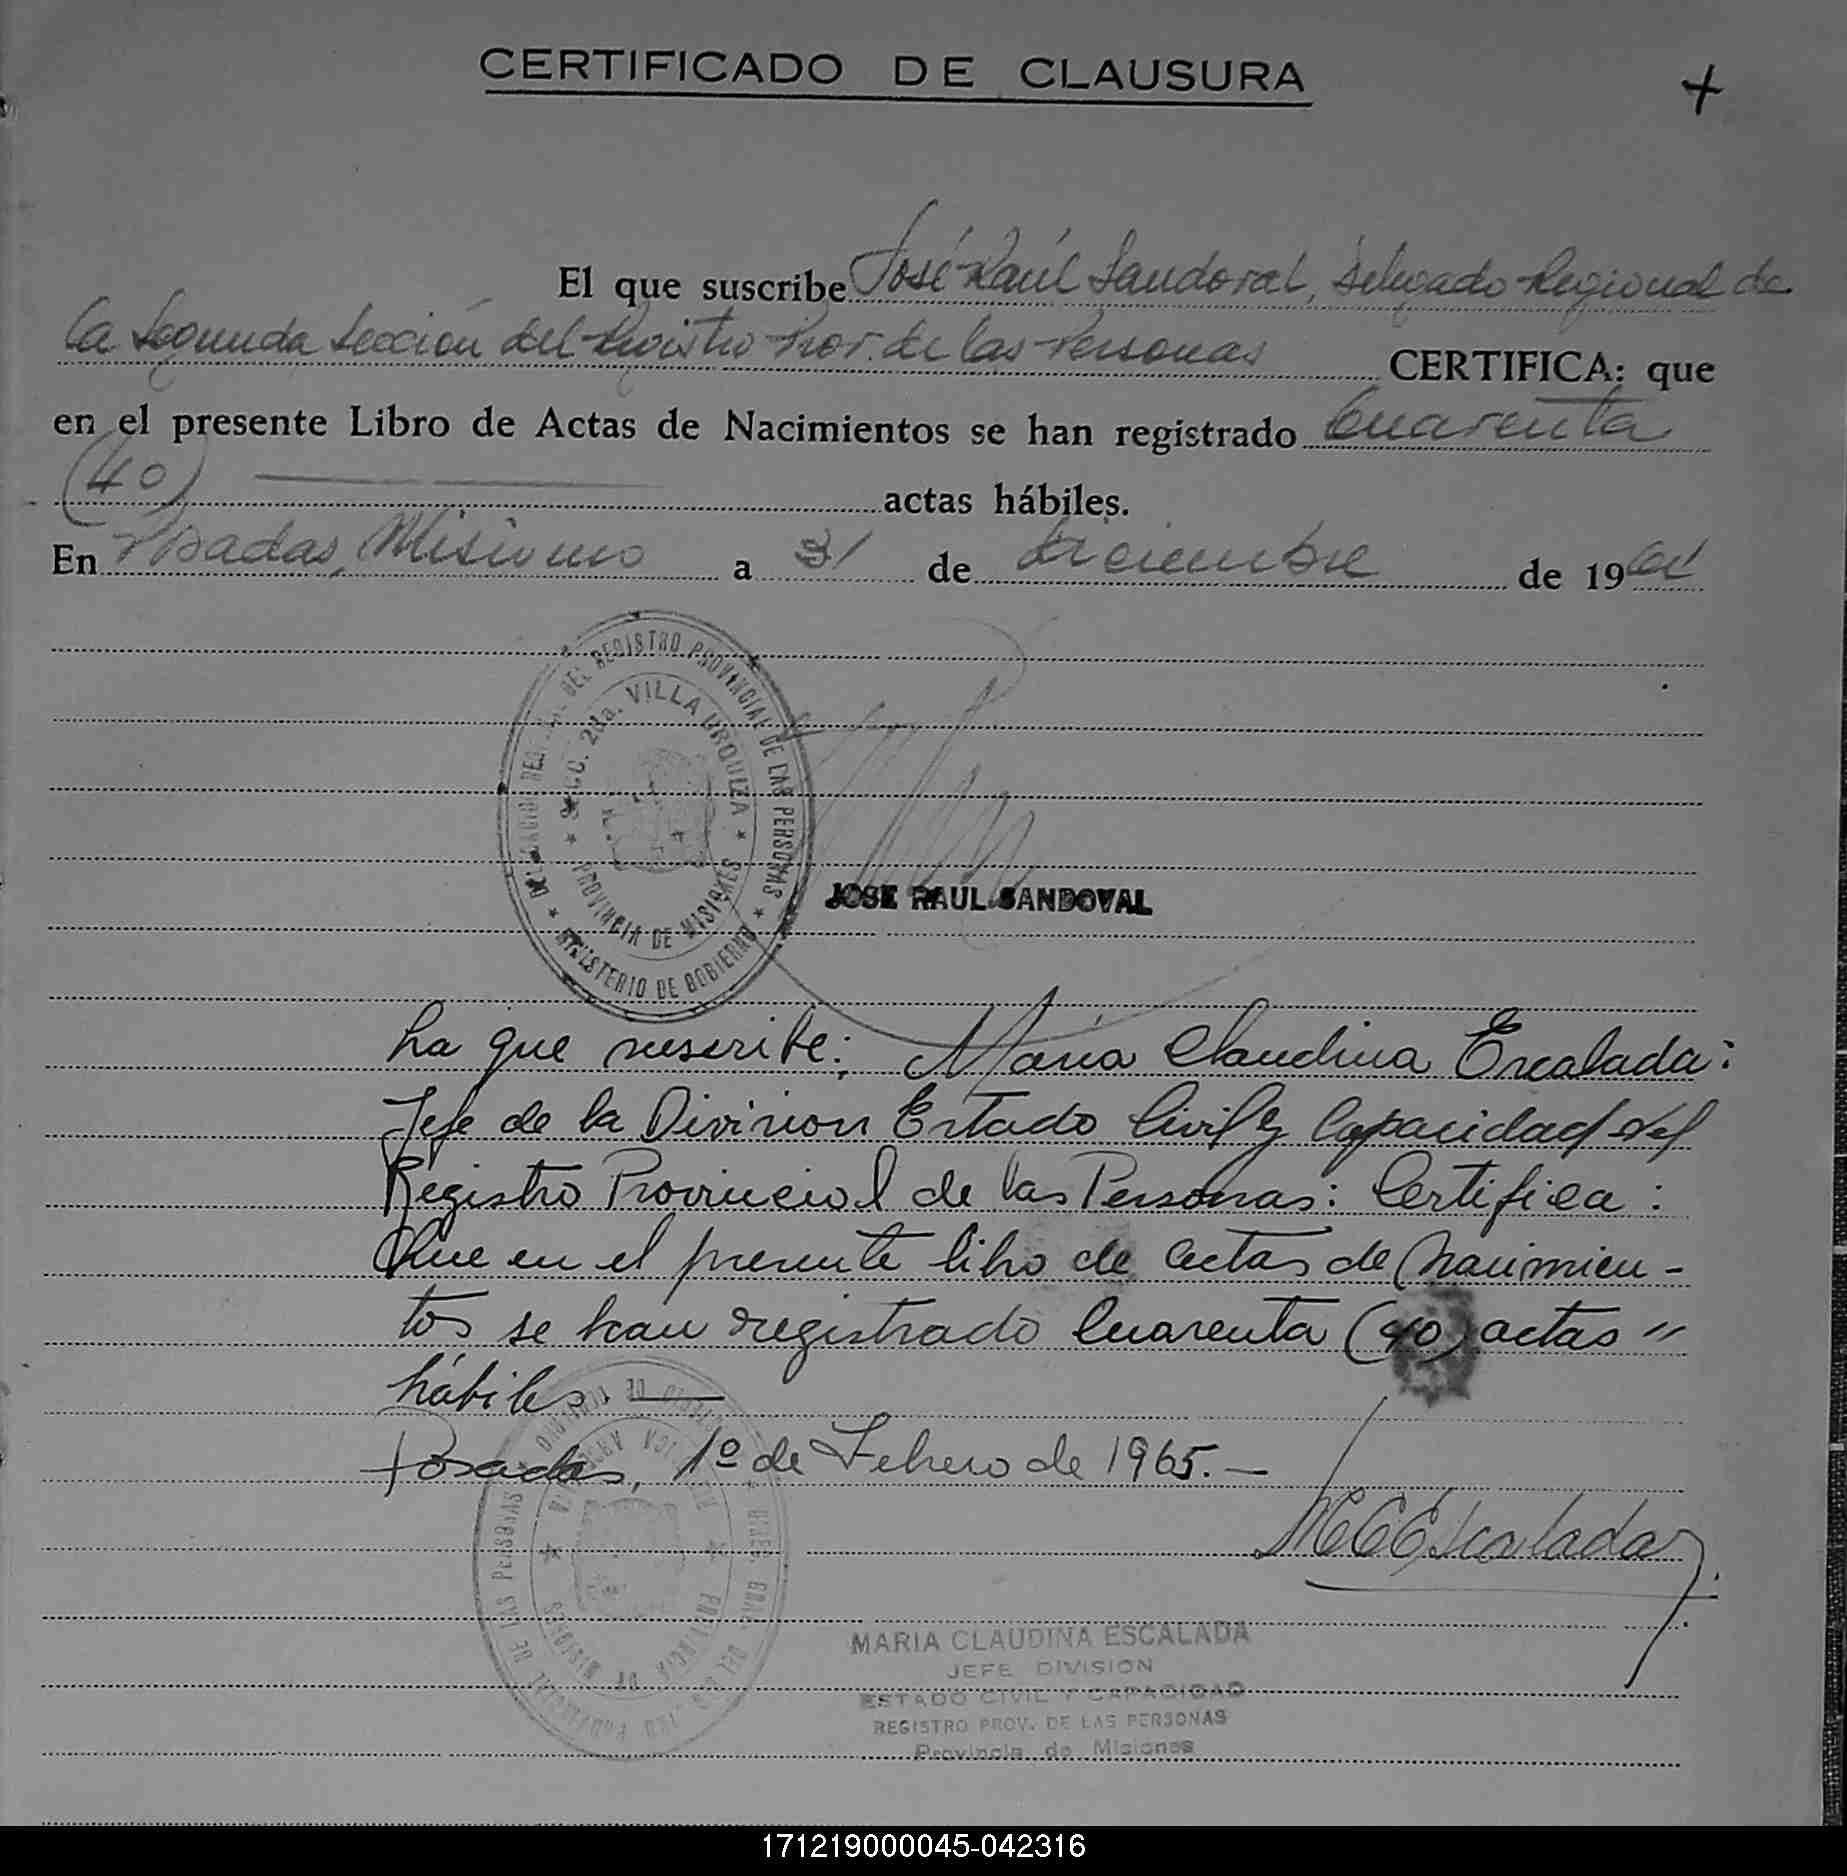 CERTIFICADO DE CLAUSURA
+
El que suscribe José Raúl Sandoval, Delegado Regional de
la Segunda Sección del Registro Prov. de las Personas CERTIFICA: que
en el presente Libro de Actas de Nacimientos se han registrado Cuarenta
(40) actas hábiles.
En Posadas, Misiones a 31 de Diciembre de 19
DEL REGISTRO PROVINCIAL DE LAS PERSONAS
SECC. 2da. VILLA URQUIZA
PROVINCIA DE MISIONES
MINISTERIO DE GOBIERNO
JOSE RAUL SANDOVAL
La que suscribe; María Claudina Escalada:
Jefe de la Division Estado Civil y Capacidad del
Registro Provincial de las Personas: Certifica:
Que en el presente libro de actas de Nacimien-
tos se han registrado Cuarenta (40) actas "
hábiles. —
Posadas, 1º de Febrero de 1965. —
MCEscalada
PROVINCIA DE MISIONES
MARIA CLAUDINA ESCALADA
JEFE DIVISION
ESTADO CIVIL Y CAPACIDAD
REGISTRO PROV. DE LAS PERSONAS
Provincia de Misiones
171219000045-042316